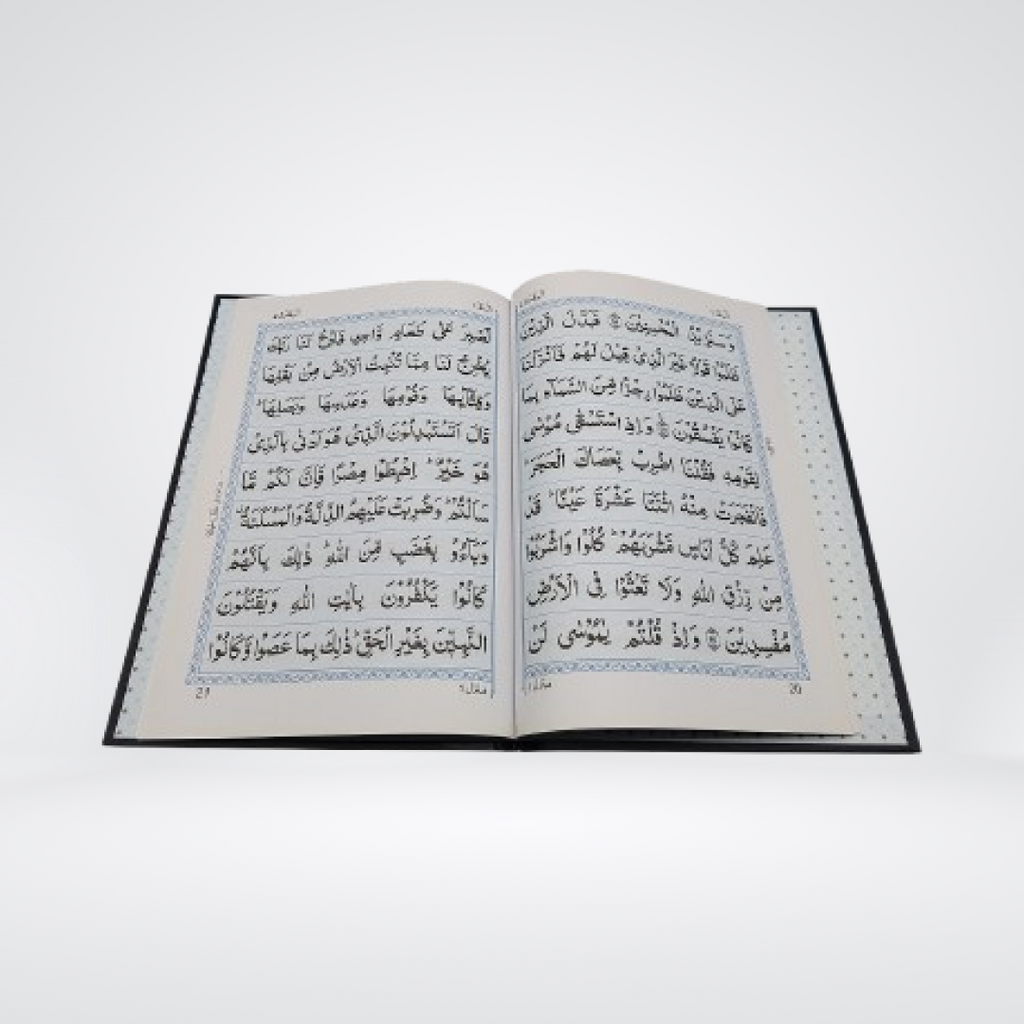 وَسَنَزِيْدُ الْمُحْسِنِيْنَ ۝ فَبَدَّلَ الَّذِيْنَ
ظَلَمُوْا قَوْلًا غَيْرَ الَّذِىْ قِيْلَ لَهُمْ فَاَنْزَلْنَا
عَلَى الَّذِيْنَ ظَلَمُوْا رِجْزًا مِّنَ السَّمَآءِ بِمَا
كَانُوْا يَفْسُقُوْنَ ۝ وَاِذِ اسْتَسْقٰى مُوْسٰى
لِقَوْمِهٖ فَقُلْنَا اضْرِبْ بِّعَصَاكَ الْحَجَرَ ؕ
فَانْفَجَرَتْ مِنْهُ اثْنَتَا عَشْرَةَ عَيْنًا ؕ قَدْ
عَلِمَ كُلُّ اُنَاسٍ مَّشْرَبَهُمْ ؕ كُلُوْا وَاشْرَبُوْا
مِنْ رِّزْقِ اللّٰهِ وَلَا تَعْثَوْا فِى الْاَرْضِ
مُفْسِدِيْنَ ۝ وَاِذْ قُلْتُمْ يٰمُوْسٰى لَنْ
منزل ١
20
نَّصْبِرَ عَلٰى طَعَامٍ وَّاحِدٍ فَادْعُ لَنَا رَبَّكَ
يُخْرِجْ لَنَا مِمَّا تُنْۢبِتُ الْاَرْضُ مِنْۢ بَقْلِهَا
وَقِثَّآئِهَا وَفُوْمِهَا وَعَدَسِهَا وَبَصَلِهَا ؕ
قَالَ اَتَسْتَبْدِلُوْنَ الَّذِىْ هُوَ اَدْنٰى بِالَّذِىْ
هُوَ خَيْرٌ ؕ اِهْبِطُوْا مِصْرًا فَاِنَّ لَكُمْ مَّا
سَاَلْتُمْ ؕ وَضُرِبَتْ عَلَيْهِمُ الذِّلَّةُ وَالْمَسْكَنَةُ
وَبَآءُوْ بِغَضَبٍ مِّنَ اللّٰهِ ؕ ذٰلِكَ بِاَنَّهُمْ
كَانُوْا يَكْفُرُوْنَ بِاٰيٰتِ اللّٰهِ وَيَقْتُلُوْنَ
النَّبِيّٖنَ بِغَيْرِ الْحَقِّ ؕ ذٰلِكَ بِمَا عَصَوْا وَّكَانُوْا
منزل ١
21